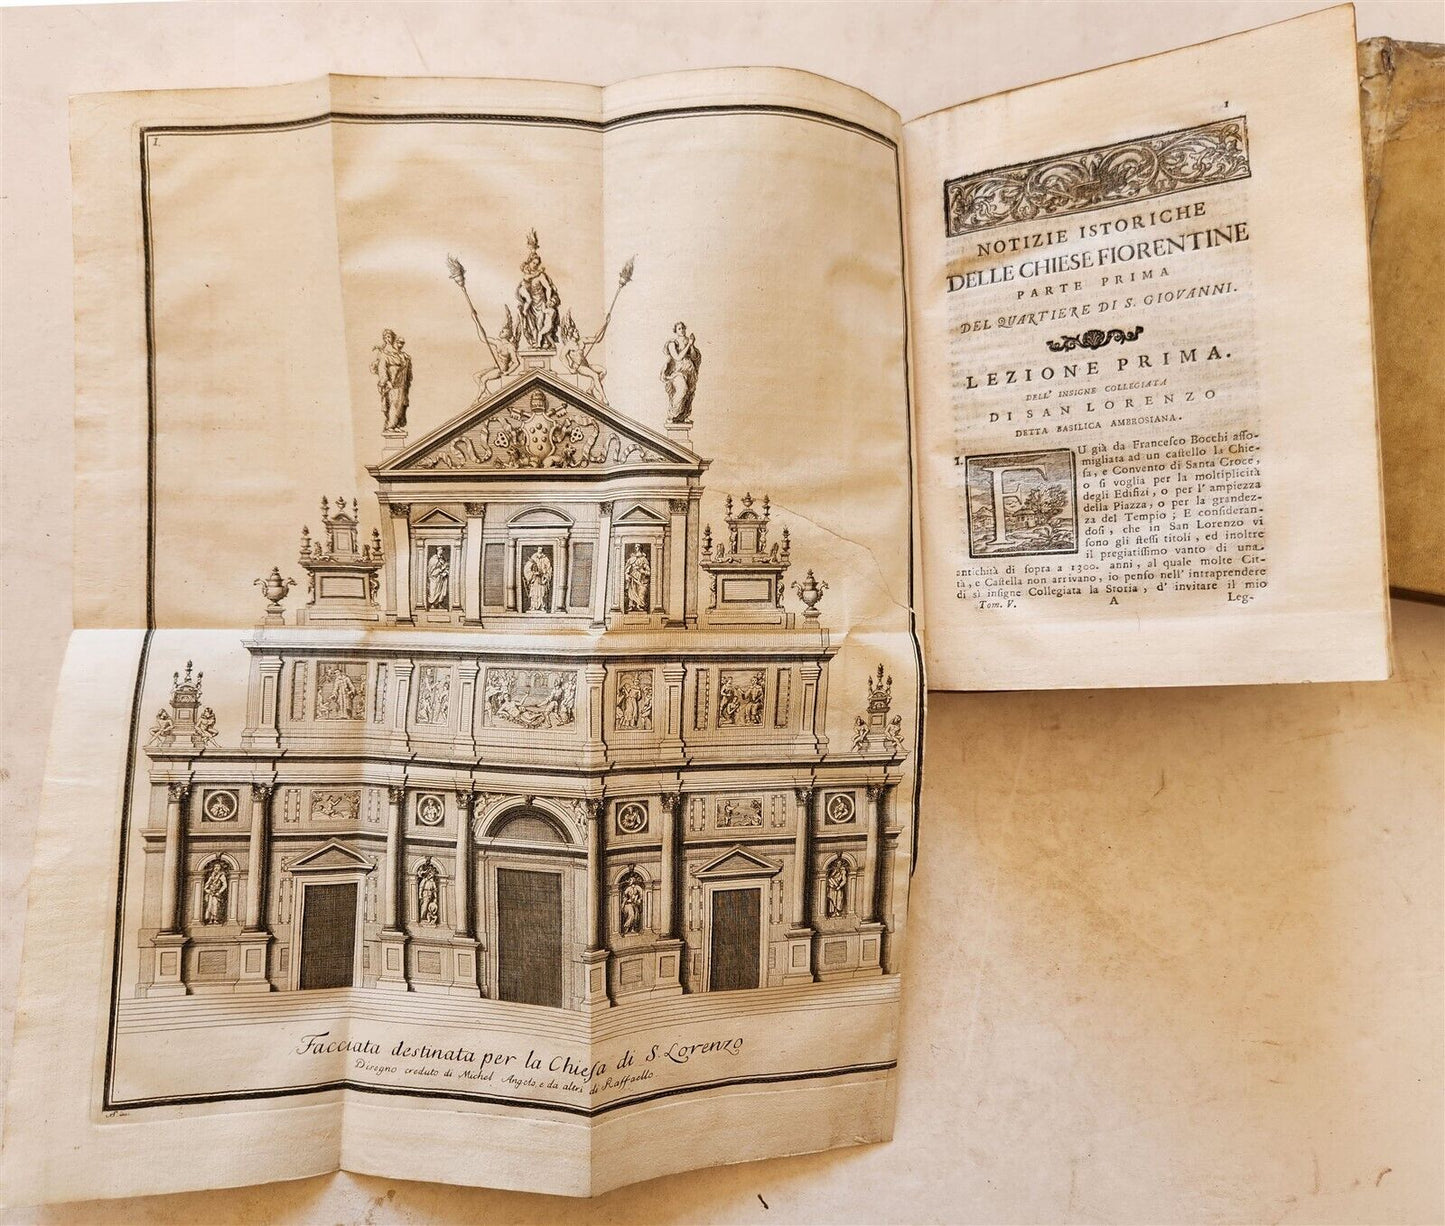 1.
Facciata destinata per la Chiesa di S. Lorenzo
Disegno creduto di Michel Angelo, e da altri di Raffaello
1
NOTIZIE ISTORICHE
DELLE CHIESE FIORENTINE
PARTE PRIMA
DEL QUARTIERE DI S. GIOVANNI.
LEZIONE PRIMA.
DELL' INSIGNE COLLEGIATA
DI SAN LORENZO
DETTA BASILICA AMBROSIANA.
I. FU già da Francesco Bocchi asso-
migliata ad un castello la Chie-
sa, e Convento di Santa Croce,
o si voglia per la moltiplicità
degli Edifizi, o per l' ampiezza
della Piazza, o per la grandez-
za del Tempio; E consideran-
dosi, che in San Lorenzo vi
sono gli stessi titoli, ed inoltre
il pregiatissimo vanto di una
antichità di sopra a 1300. anni, al quale molte Cit-
tà, e Castella non arrivano, io penso nell' intraprendere
di sì insigne Collegiata la Storia, d' invitare il mio
Tom. V. A Leg-